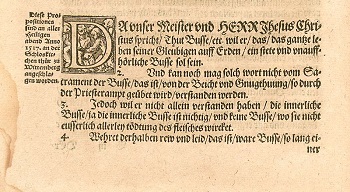 Diese Pro
positiones
sind an aller
Heiligen
abend Anno
1517. an der
Schloskir
chen thür zu
Wittemberg
angeschla
gen worden.
DA vnser Meister vnd HERR Jhesus Chri
stus spricht / Thut Busse / etc. wil er / das / das gantze le
ben seiner Gleubigen auff Erden / ein stete vnd vnauff
hörliche Busse sol sein.
2. Vnd kan noch mag solch wort nicht vom Sa
crament der Busse / das ist / von der Beicht vnd Gnugthuung / so durch
der Priesterampt geübet wird / verstanden werden.
3. Jedoch wil er nicht allein verstanden haben / die innerliche
Busse / ja die innerliche Busse ist nichtig / vnd keine Busse / wo sie nicht
eusserlich allerley tödtung des fleisches wircket.
4 Wehret derhalben rew vnd leid / das ist / ware Busse / so lang ei
ner